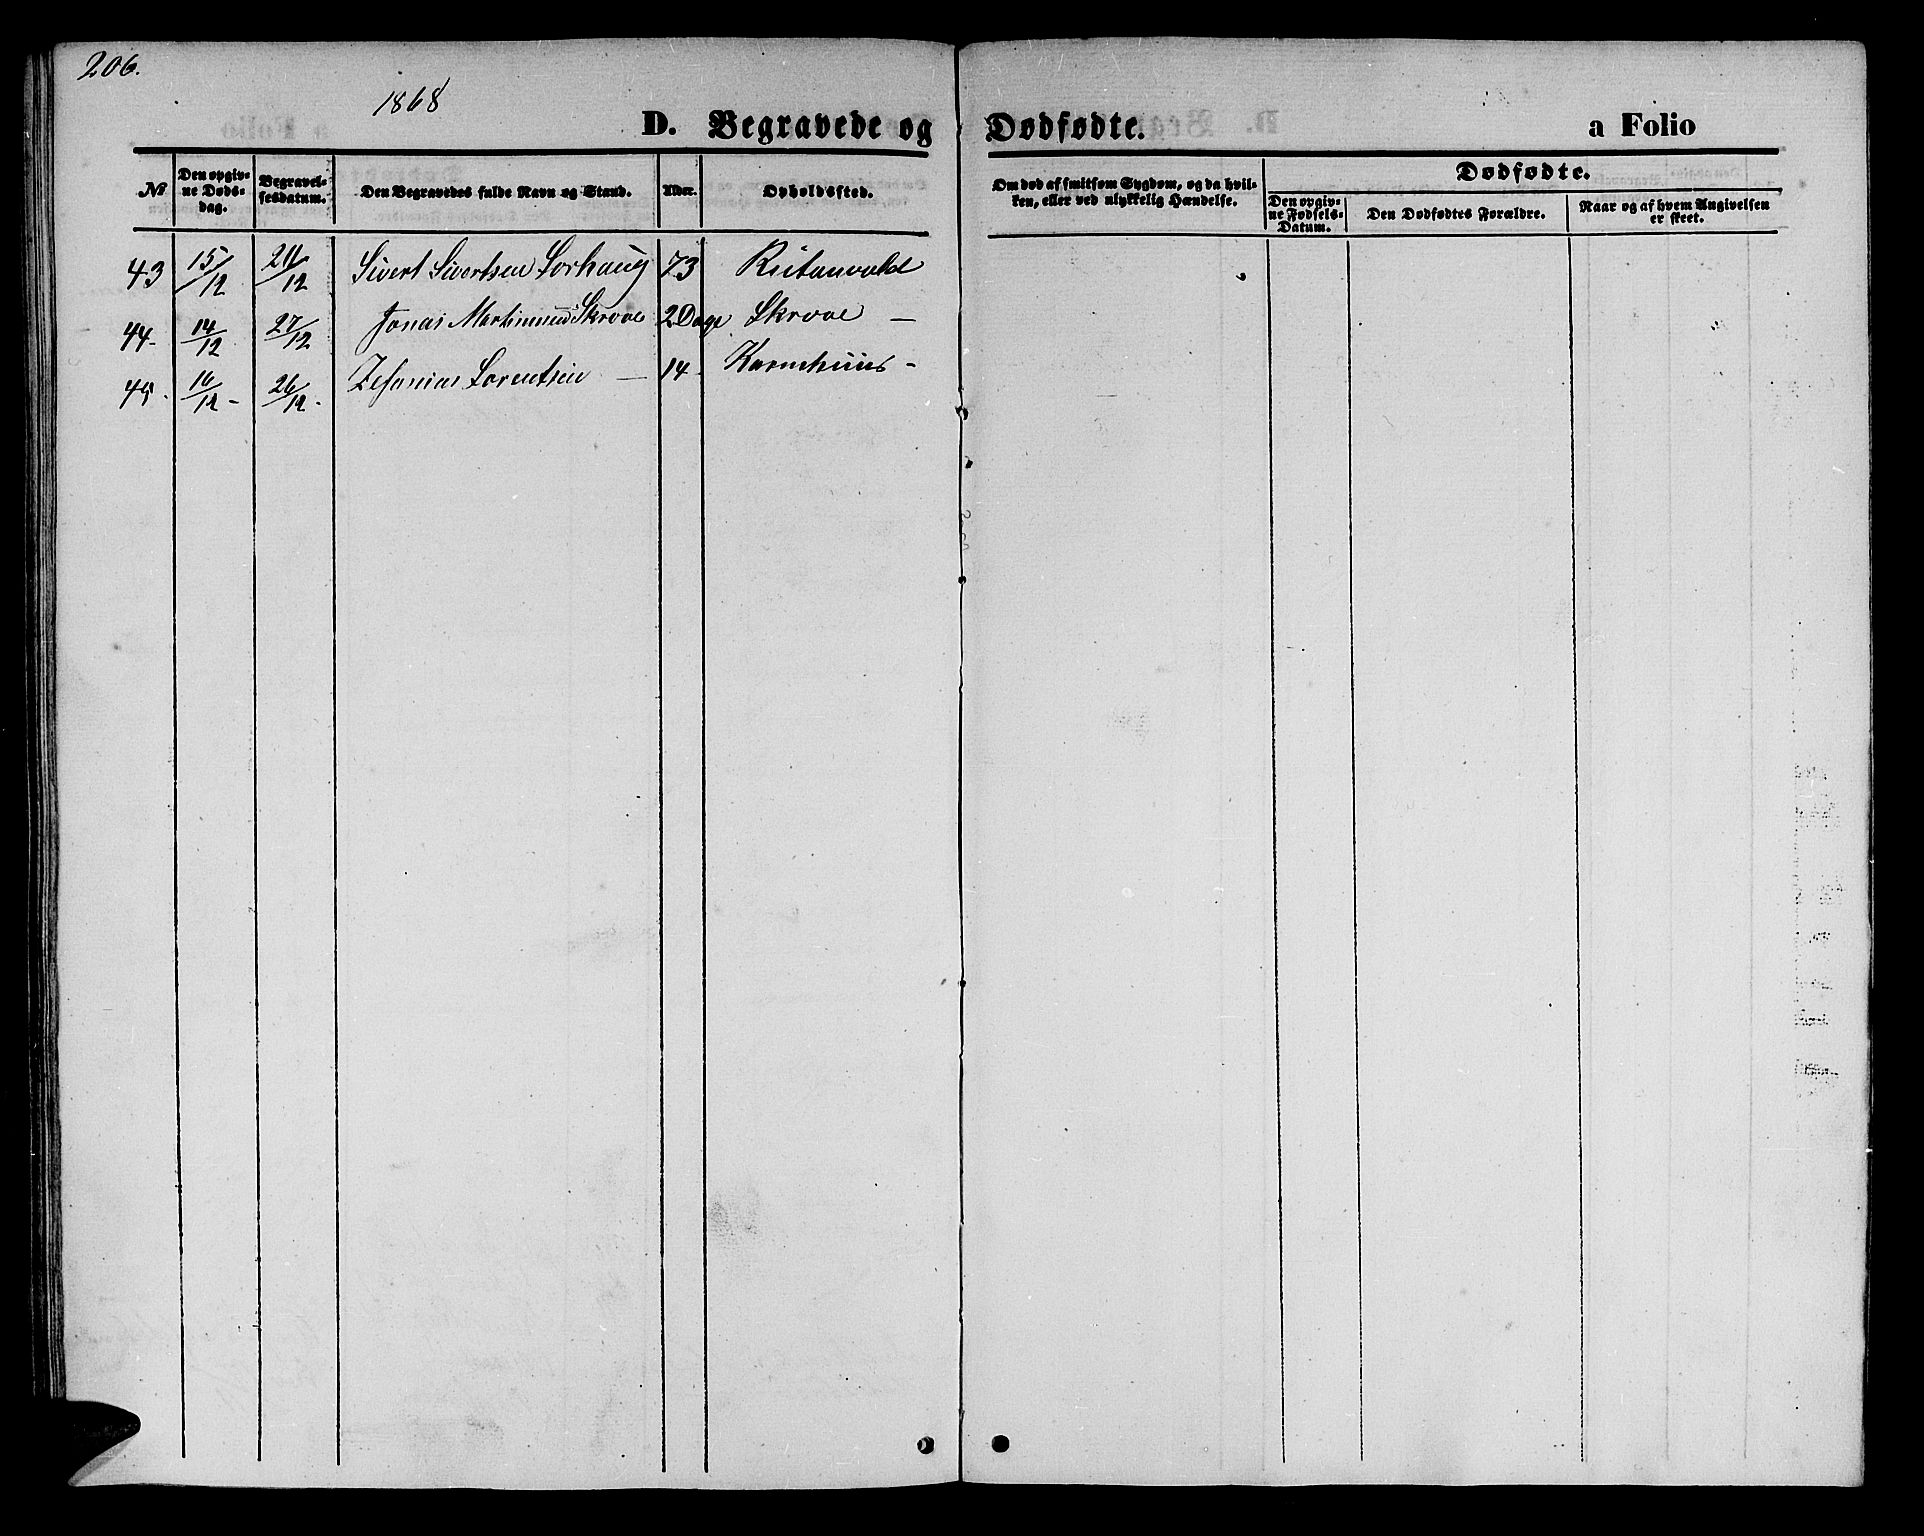 206.
1868
D. Begravede og Dødfødte. a Folio
No
Den opgiv-
ne Døds-
dag.
Begravel-
sesdatum.
Den Begravedes fulde Navn og Stand.
Alder.
Opholdssted.
Om død af smitsom Sygdom, og da hvil-
ken, eller ved ulykkelig Hændelse.
Dødfødte.
Den opgiv-
ne Fødsels-
Datum.
Den Dødfødtes Forældre.
Naar og af hvem Angivelsen
er skeet.
43 15/12 Sivert Sivertsen Sorhaug 73
44- 14/12 27/12 Jonas Skrove 2 Dage Skrove —
45. 16/12 - 26/12 - Zefanias Lorentsen — 14 - Kornhuus -